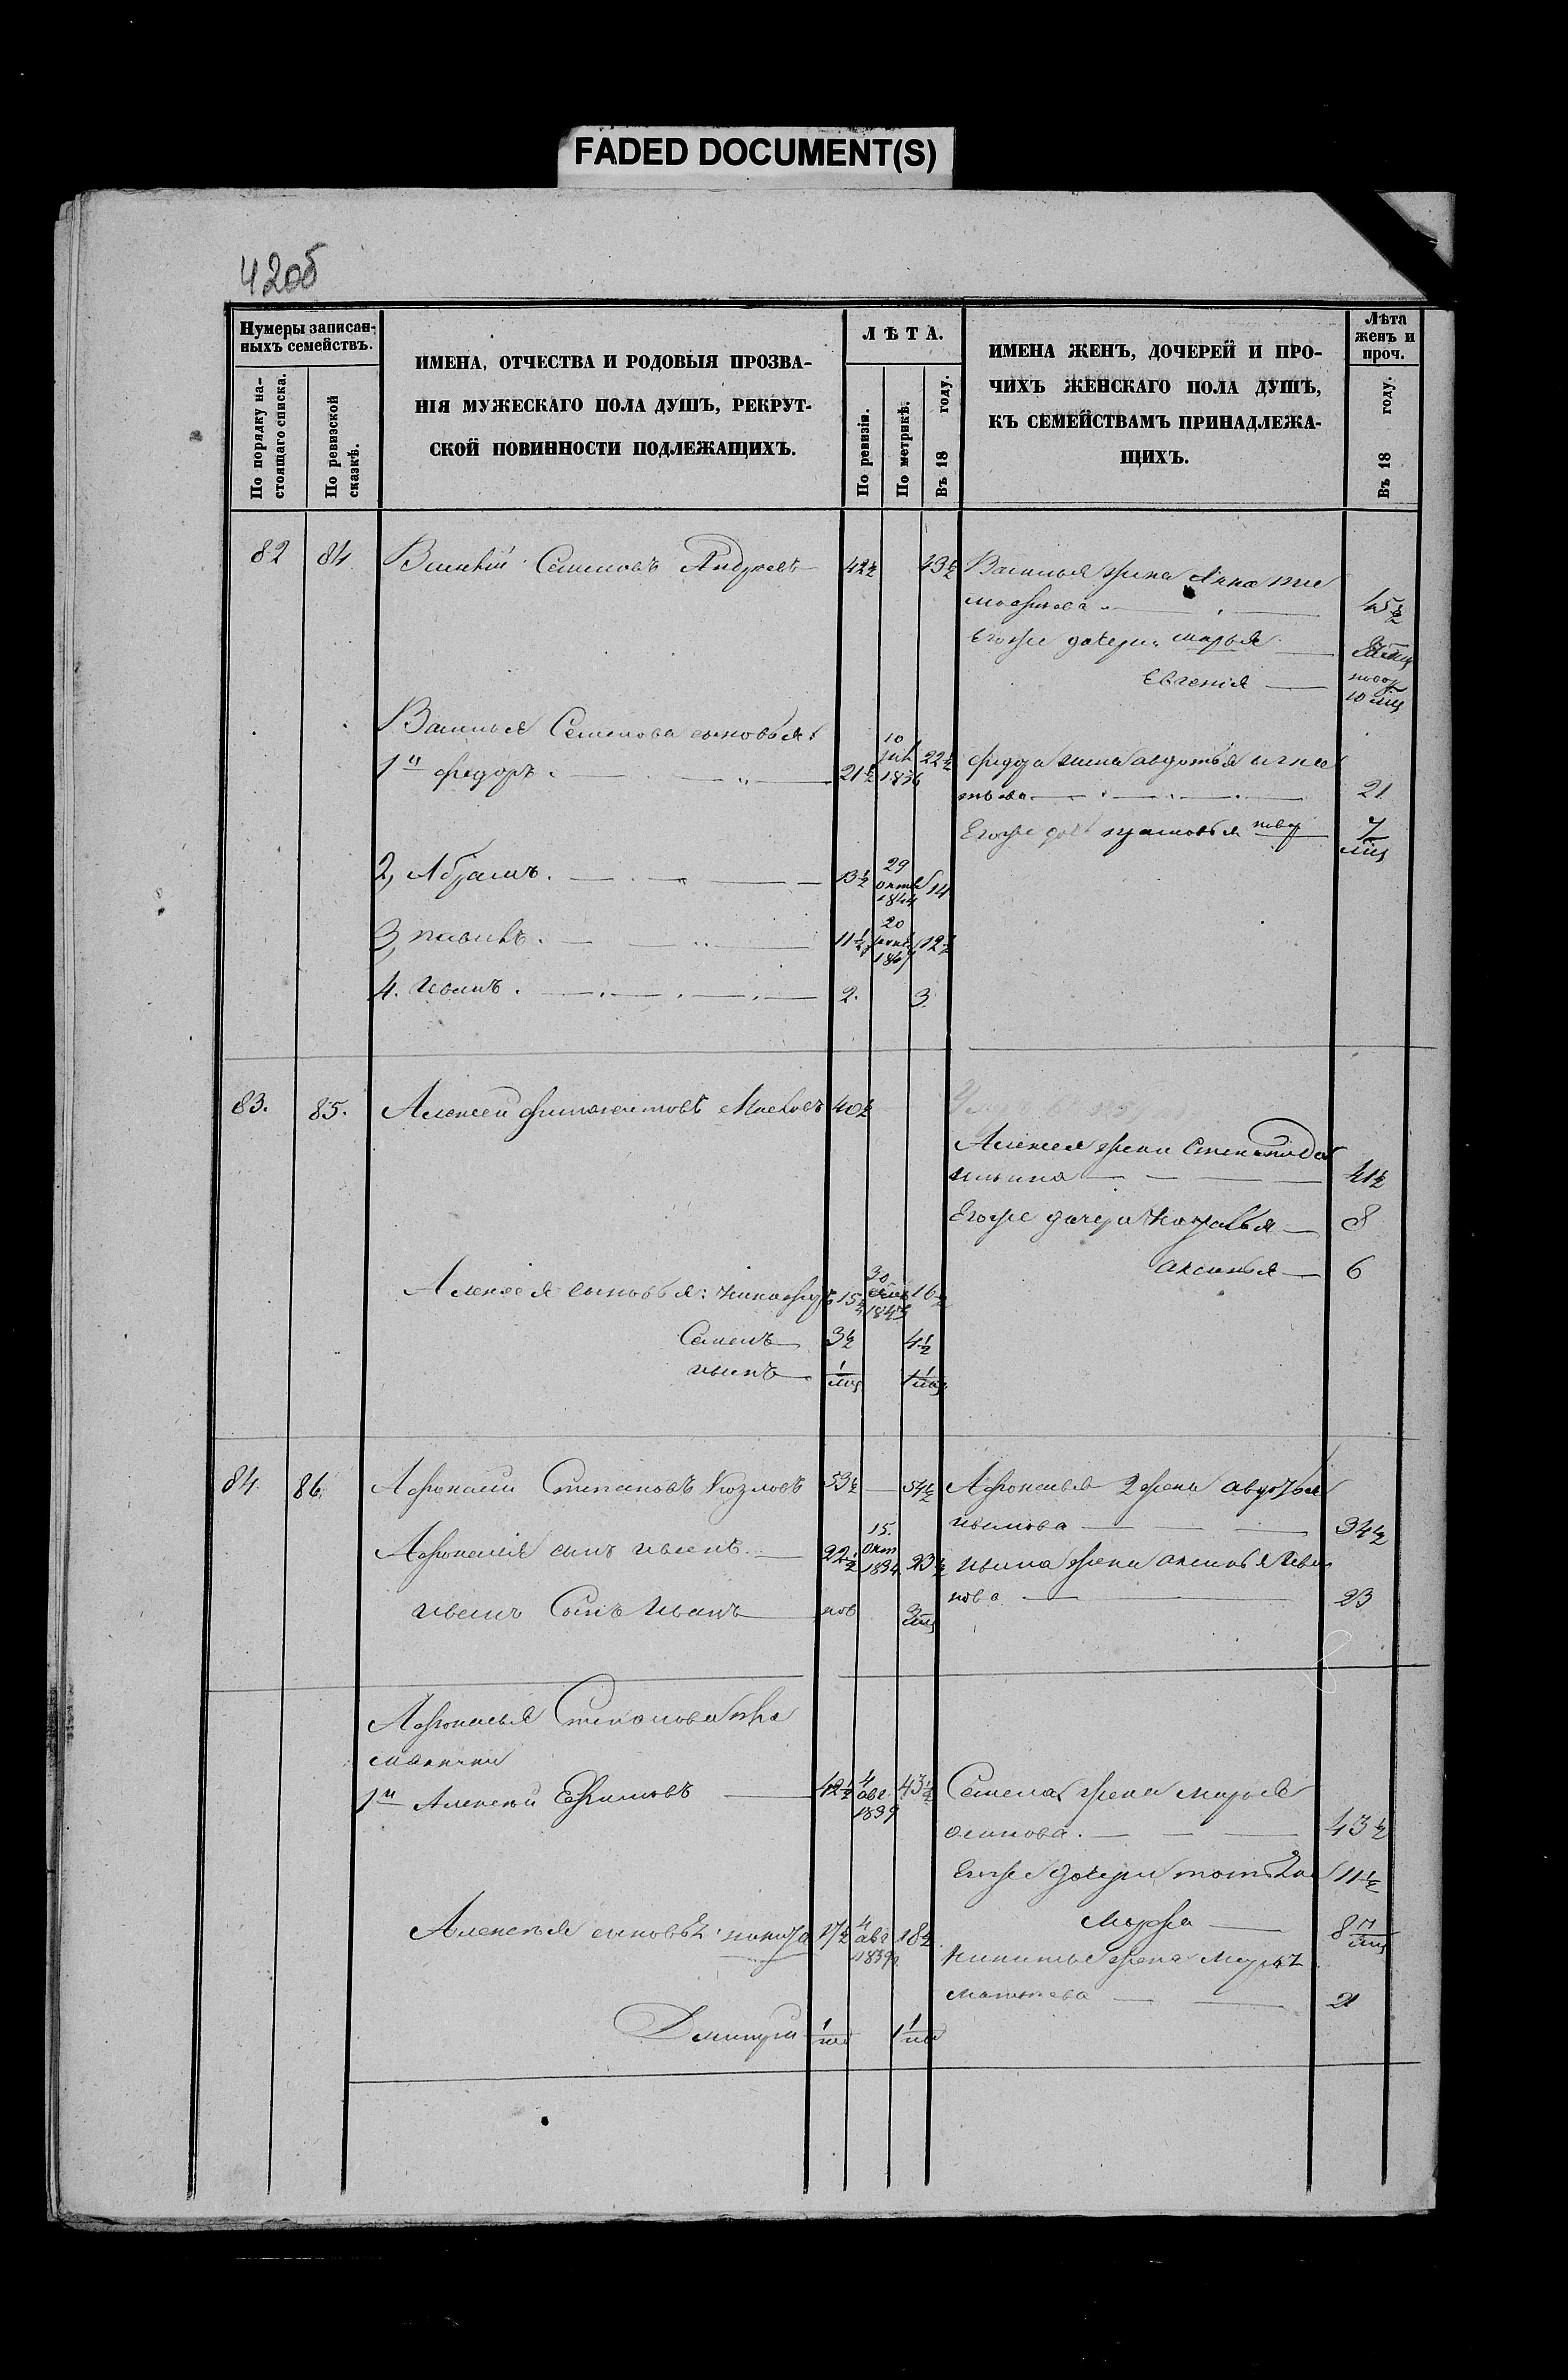 FADED DOCUMENT(S)
42об
Нумеры записан-
ныхъ семействъ.
По порядку на-
стоящаго списка.
По ревизской
сказкѣ.
ИМЕНА, ОТЧЕСТВА И РОДОВЫЯ ПРОЗВА-
НІЯ МУЖЕСКАГО ПОЛА ДУШЪ, РЕКРУТ-
СКОЙ ПОВИННОСТИ ПОДЛЕЖАЩИХЪ.
ЛѢТА.
По ревизіи.
По метрикѣ.
Въ 18 году.
ИМЕНА ЖЕНЪ, ДОЧЕРЕЙ И ПРО-
ЧИХЪ ЖЕНСКАГО ПОЛА ДУШЪ,
КЪ СЕМЕЙСТВАМЪ ПРИНАДЛЕЖА-
ЩИХЪ.
Лѣта
женъ и
проч.
Въ 18 году.
82 84 Василій Семеновъ Андреевъ 42½ 43½ Василья жена Анна Тим
офеева 45½
Егоже дочери: марья
Евгенія
10 мц
Василья Семенова сыновья:
1й федоръ 21½ 10 1836 22½ федора жена авдотья игна
тьева 21
Егоже прасковья 7 мц
2, Абрамъ 13½ 29 октяб 1844 14
3, павилъ 11½ 20 12½
4. иванъ 2. 3.
83. 85. Алексей 40½
Алексея жена Степанида
ильина 41½
Егоже дочери наталья 8
аксинья 6
Алексея сыновья: никифоръ 15½ 30 1843 16½
Семенъ 3½ 4½
иванъ 1 мц 1 1 мц
84. 86. Афонасий Степановъ Козловъ 53½ 54½ Афонасья 2 жена авдотья
иванова 34½
Афонасия сынъ иванъ 22½ 15. окт 1834 23½ ивана жена аксинья Ива
нова 23
ивана Сынъ иванъ нов 3 мц
Афонасья Степанова
1й Алексей Ефимовъ 42½ 4 авг 1839 43½ Семена жена марья
осипова 43½
Егоже дочери 11½
Марфа 8
Алексея сыновья: никита 17½ 4 авг 1839 18½ никиты жена Марья
матвеева 21
Дмитри 1 1 1